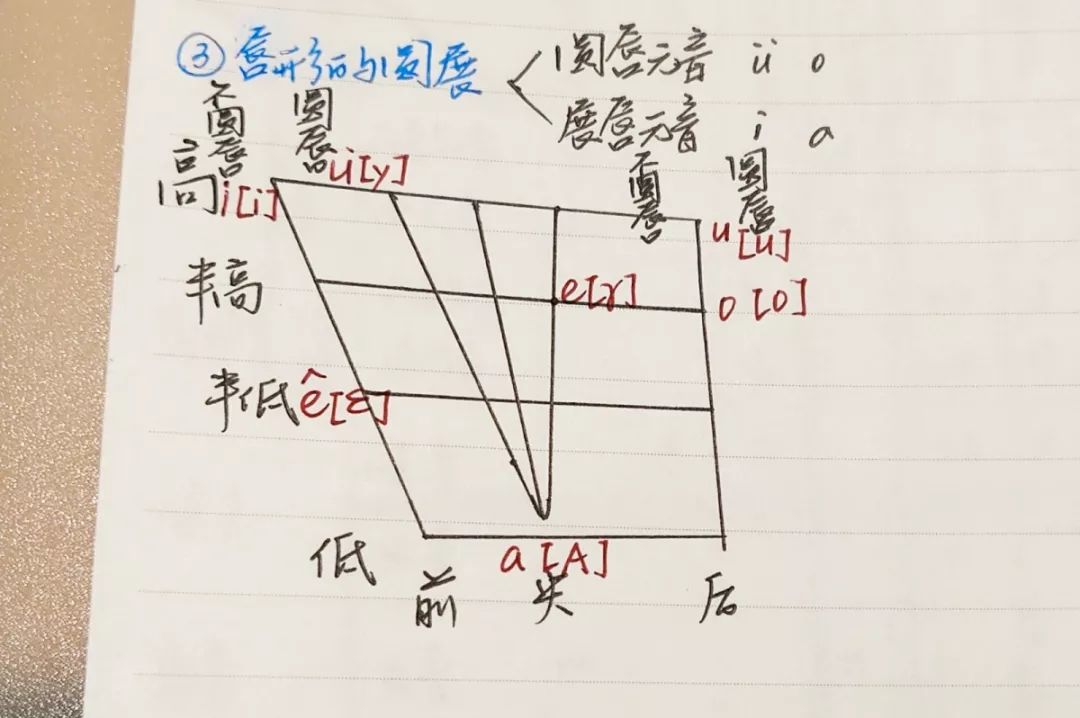 ③唇形的与圆展
圆唇元音 ü o
展唇元音 i a
不圆唇 圆唇
不圆唇 圆唇
高 i[i] ü[y] u[u]
半高 e[ɤ] o[o]
半低 ê[ɛ]
低 a[A]
前 央 后